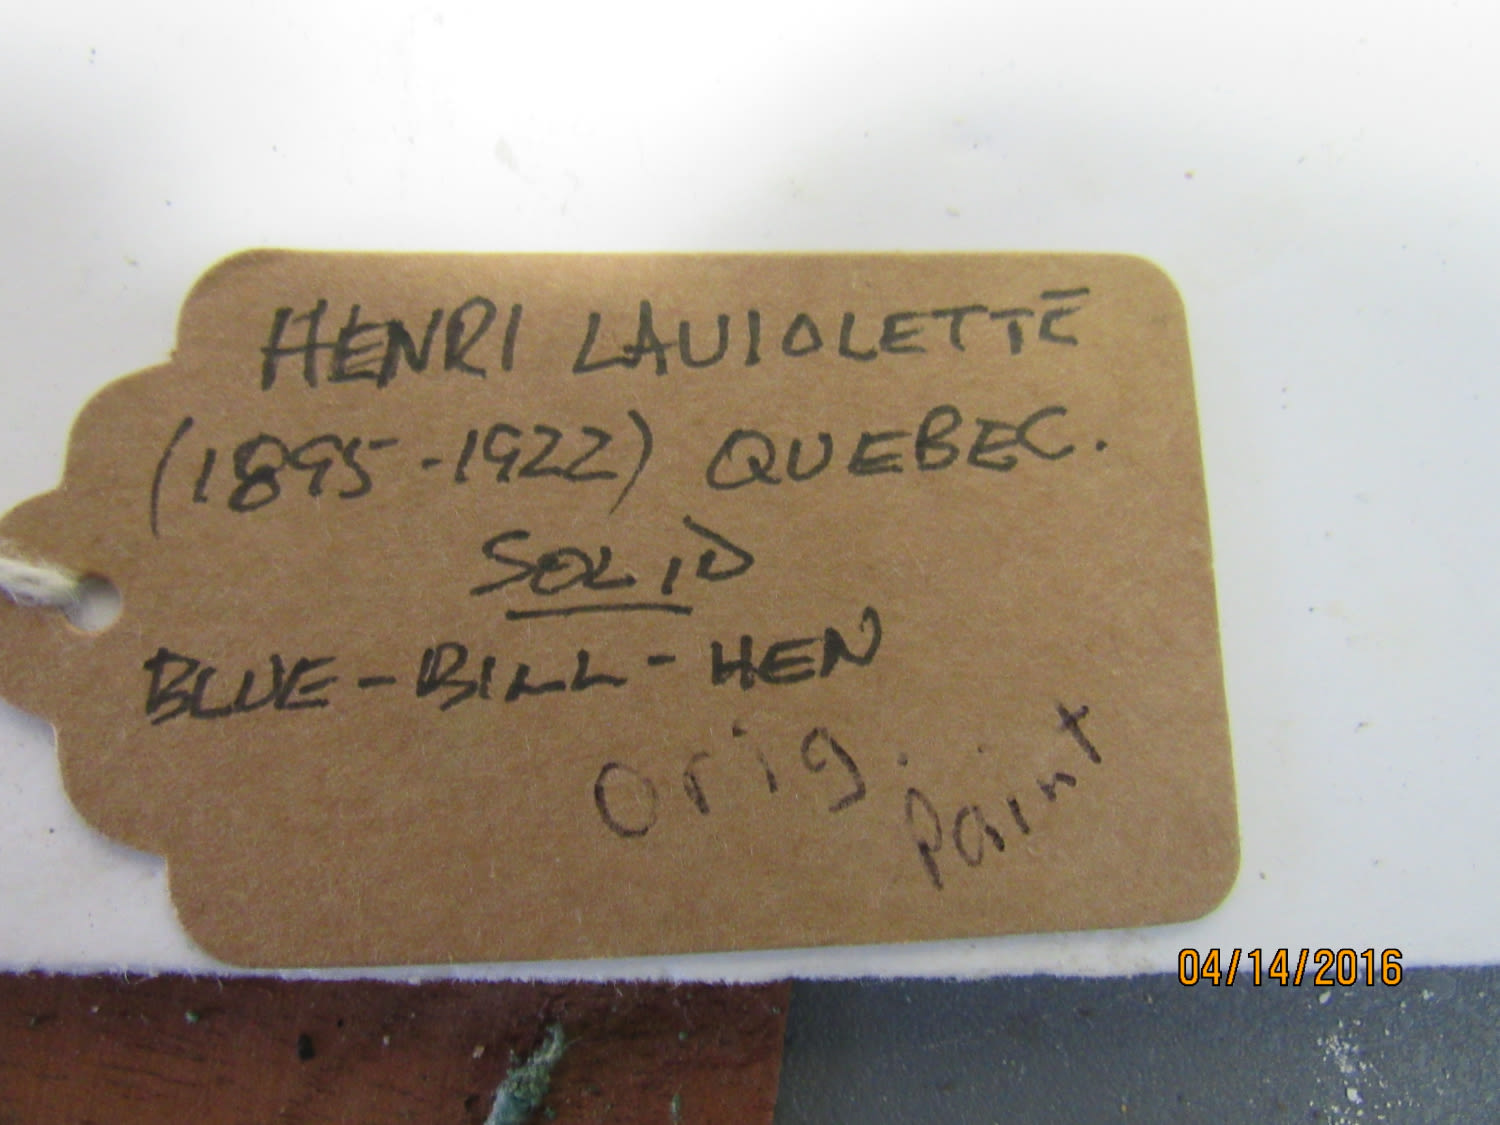 HENRI LAVIOLETTE
(1895-1922) QUEBEC.
SOLID
BLUE-BILL-HEN
orig.
Paint
04/14/2016